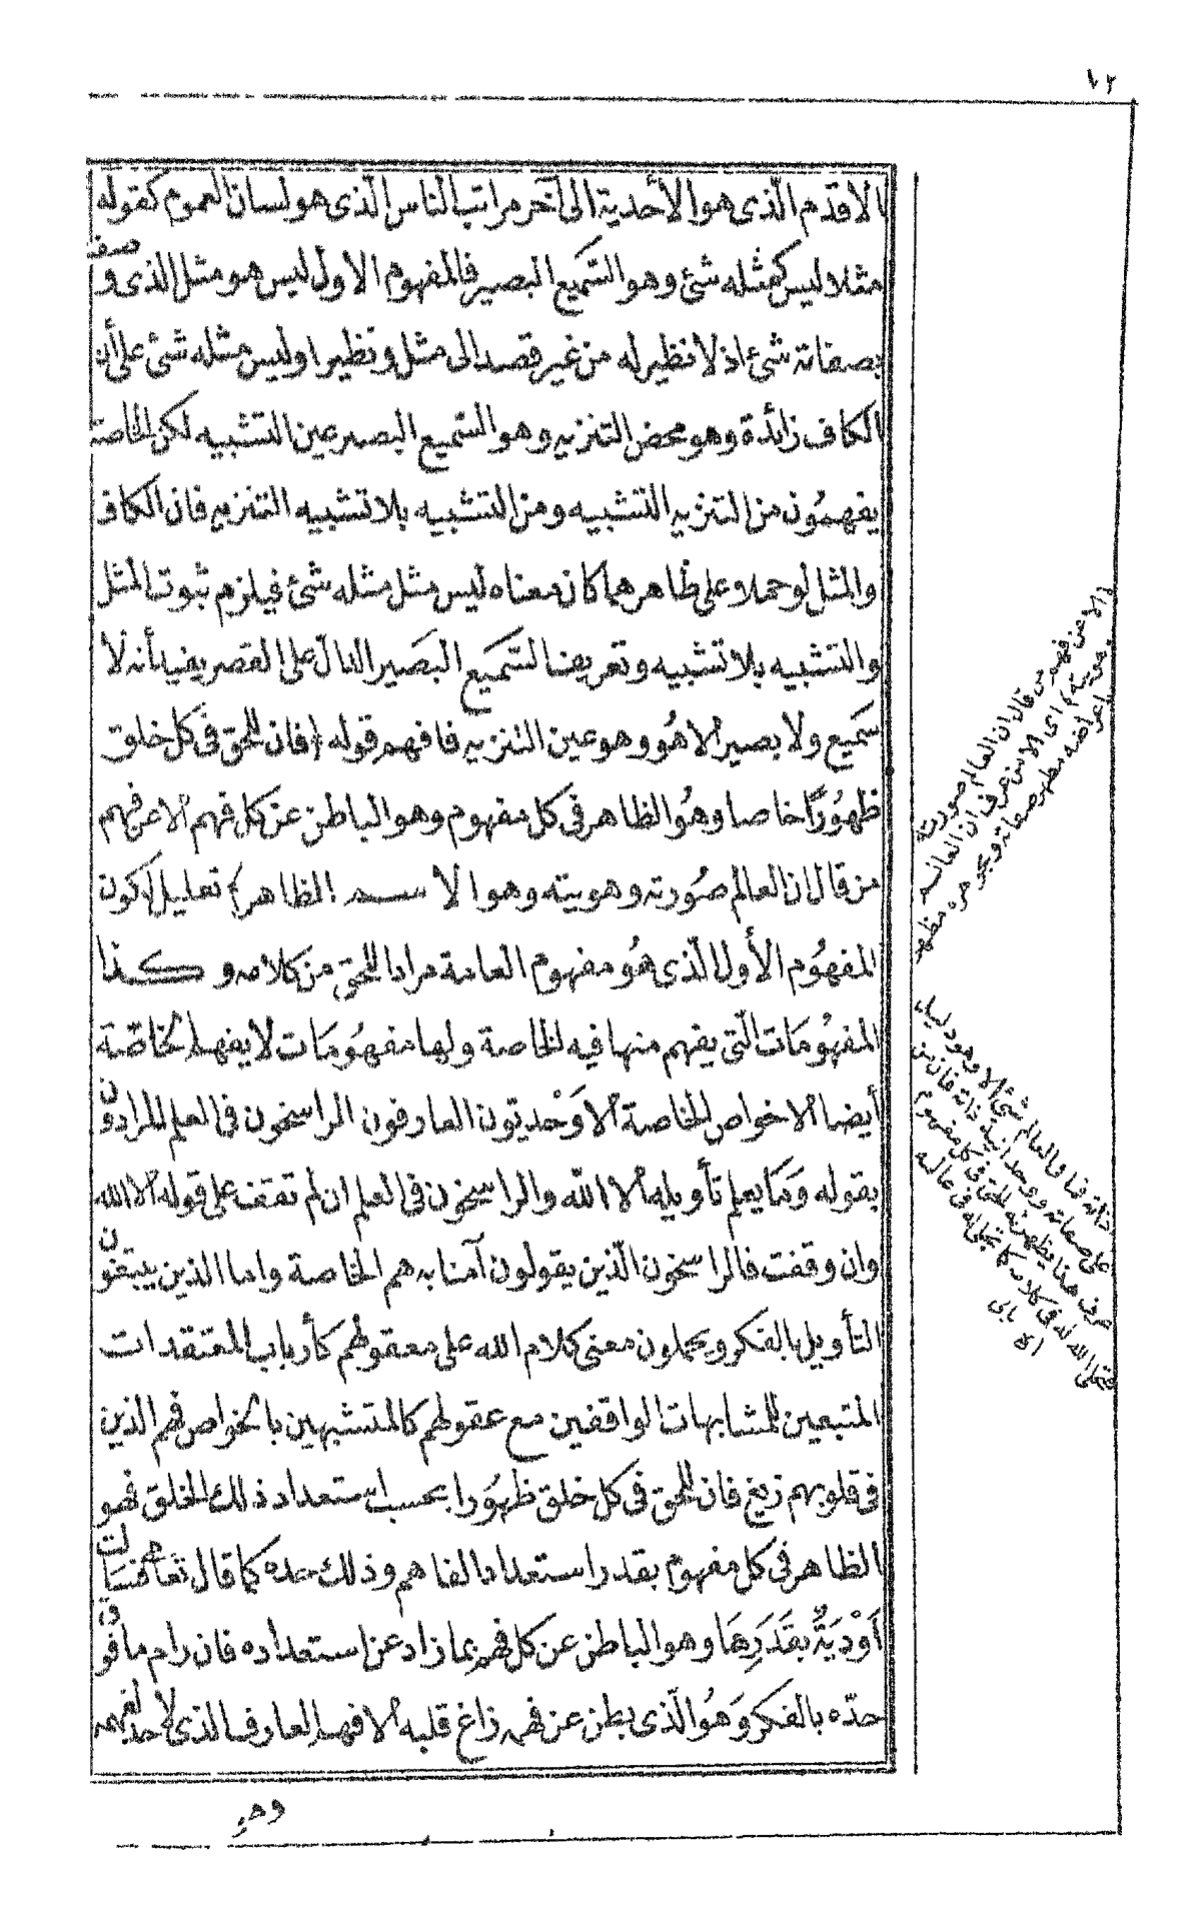 ٧٢
الاقدم الّذى هو الأحدية الى آخر مراتب الناس الّذى هو لسان العموم كقوله
مثلا ليس كمثله شئ وهو السّميع البصير فالمفهوم الاول ليس هو مثل الذى وصف
بصفاته شئ اذ لا نظير له من غير قصد الى مثل ونظير او ليس مثله شئ على أن
الكاف زائدة وهو محض التنزيه وهو السّميع البصير عين التشبيه لكن الخاصة
يفهمُون من التنزيه التشبيه ومن التشبيه بلا تشبيه التنزيه فان الكاف
والمثل لو حملا وعلى ظاهرهما كان معناه ليس مثل مثله شئ فيلزم ثبوت المثل
والتشبيه بلا تشبيه وتعريف السّميع البَصَير الدال على القصر يفيد أنه لا
سَميع ولا بصير الا هُو وهو عين التنزيه فافهم قوله (فان للحق فى كل خلق
ظهُورًا خاصا وهُو الظاهر فى كل مفهوم وهو الباطن عن كل فهم الا عن فهم
من قال ان العالم صُورته وهويته وهو الاسم الظاهر) تعليل لكون
المفهُوم الأول الّذى هُو مفهوم العامة مرادا للحق من كلامه وكذا
المفهُومَات الّتى يفهم منها فيه الخاصة ولها مفهُومَات لا يفهمها الخاصّة
أيضا الا خواص الخاصة الاوَحْديّون العارفون الراسخون فى العلم المرادون
بقوله وَمَا يعلم تأويله الا الله والراسخون فى العلم ان لم تقف على قوله الا الله
وان وقفت فالراسخون الّذين يقولون آمنا به هم الخاصة واما الذين يبتغون
التأويل بالفكر ويحملون معنى كلام الله على معقولهم كأرباب المعتقدات
المتبعين للمتشابهات الواقفين مع عقولهم كالمتشبهين بالخواص فهم الذين
فى قلوبهم زيغ فان للحق فى كل خلق ظهُورا بحسب استعداد ذلك الخلق فهو
الظاهر فى كل مفهوم بقدر استعداد الفاهم وذلك حده كما قال تعالى فسَالت
أَوْدِيَةٌ بقَدَرِهَا وهو الباطن عن كل فهم بما زاد عن استعداده فان رام ما فوق
حدّه بالفكر وَهُو الّذى بطن عن فهمه زاغ قلبه الا فهم العارف الذى لا حد لفهمه
وهو
(الا عن فهم من قال ان العالم صورته
وهويته) اى الا من عرف ان العالم
ذاته فما فى العالم شئ الا وهو دليل
على صفاته ووحدانية ذاته فان من
عرف هذا يظهر له الحق فى كل مفهوم
فتجلى الله له فى كلامه كما تجلى له فى عالمه
اه بالى